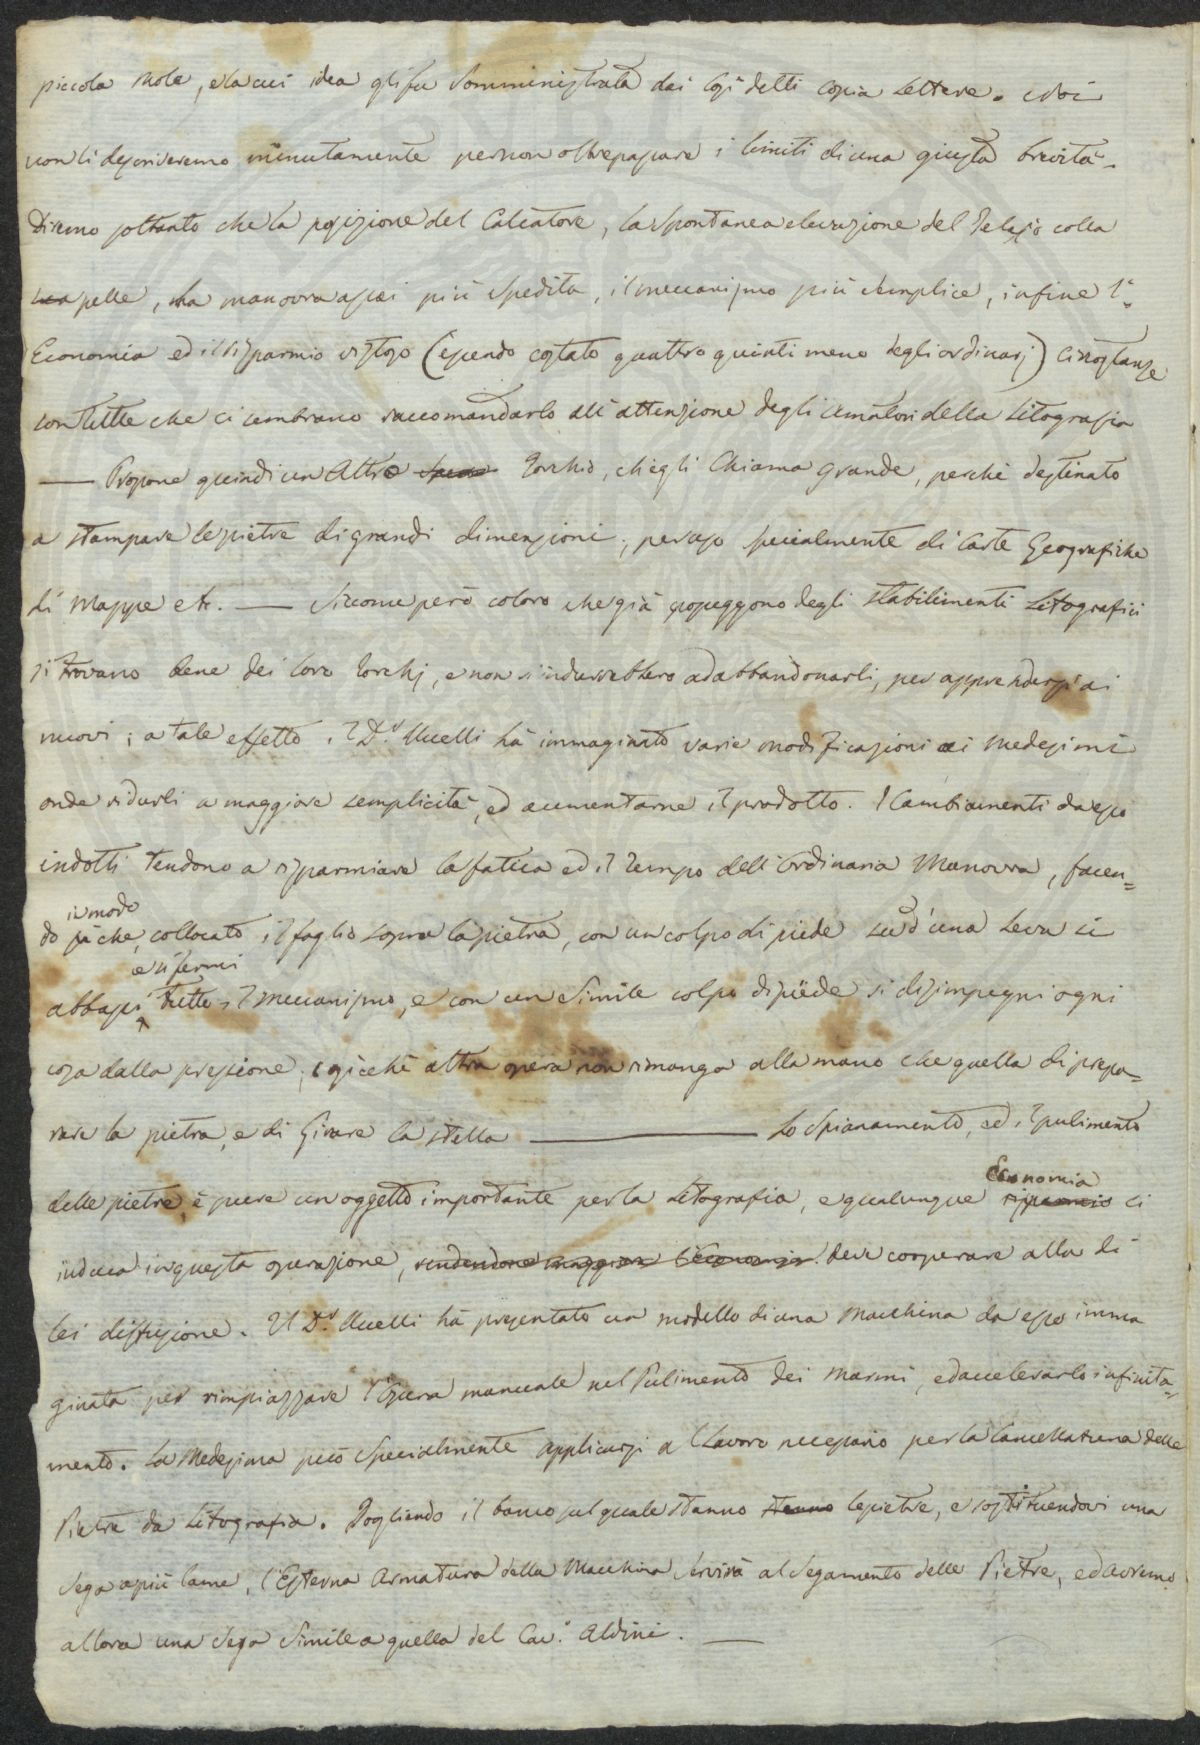 piccola mole, e la cui idea gli fu somministrata dai così detti copia Lettere. Noi
non li descriveremo minutamente per non oltrepassare i limiti di una giusta brevità.
Diremo soltanto che la posizione del Calcatore, la spontanea elevazione del Telajo colla
sua pelle, una manovra assai più spedita, il meccanismo più semplice, infine l'
Economia ed il risparmio vistoso (essendo costato quattro quinti meno degli ordinarj) circostanze
son tutte che ci sembrano raccomandarlo all'attenzione degli amatori della Litografia
— Propone quindi un altro Torchio, ch'egli Chiama grande, perchè destinato
a stampare le pietre di grandi dimensioni, per uso specialmente di Carte Geografiche
di Mappe etc. — Siccome però coloro che già posseggono degli stabilimenti Litografici
si trovano bene dei loro Torchj, e non s'indurrebbero ad abbandonarli, per apprendersi ai
nuovi; a tale effetto il D.r Ucelli hà immaginato varie modificazioni ai medesimi
onde ridurli a maggiore semplicità, ed aumentarne il prodotto. I Cambiamenti da esso
indotti tendono a risparmiare la fatica ed il tempo dell'ordinaria Manovra, facen=
do in modo che, collocato il foglio sopra la pietra, con un colpo di piede su d'una Leva si
abbassi e si fermi tutto il meccanismo, e con un simile colpo di piede si disimpegni ogni
cosa dalla pressione, cosicchè altra opera non rimanga alla mano che quella di prepa=
rare la pietra, e di Girare la stella — Lo Spianamento, ed il pulimento
delle pietre, è pure un oggetto importante per la Litografia, e qualunque risparmio Economia si
induca in questa operazione, rendendone maggiore l'Economia deve cooperare alla di
lei diffusione. Il D.r Ucelli hà presentato un modello di una Macchina da esso imma
ginata per rimpiazzare l'Opera manuale nel Pulimento dei Marmi, ed accelerarlo infinita=
mento. La Medesima può specialmente applicarsi al lavoro necessario per la Cancellatura delle
Pietre da Litografia. Togliendo il banco sul quale stanno le pietre, e sostituendovi una
Sega a più lame, l'Esterna Armatura della Macchina servirà al Segamento delle Pietre, ed avremo
allora una Sega Simile a quella del Cav.e Aldini. —